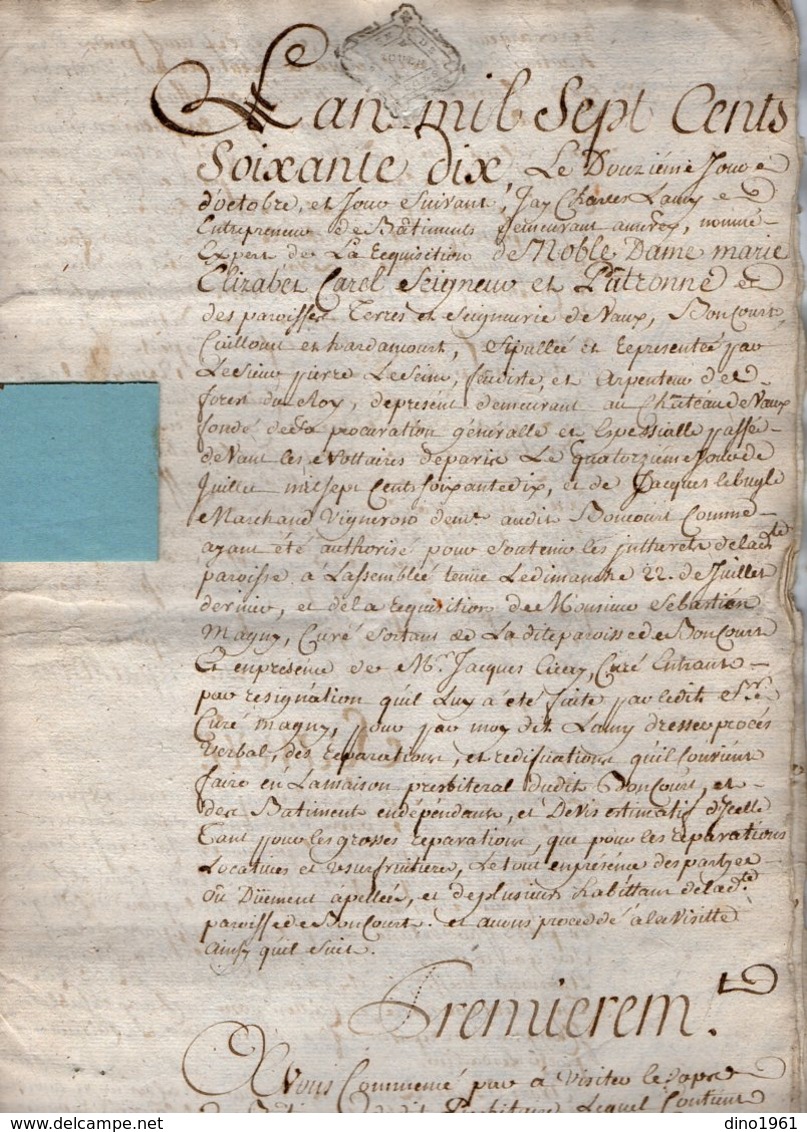 L'an mil Sept Cents
Soixante dix, Le Douziéme Jour
d'octobre, et Jour Suivant, Jay Charles Lamy
Entrepreneur de Bâtiments demeurant, nommé
Expert de La Requisition de Noble Dame marie
Elizabet Carel Seigneur et Patronne
des paroisses Terres et Seigneurie de Vaux, Boncourt
Cuillonut et hardancourt, Stipullée et Representée par
Le Sieur pierre LeSein, feudiste, et Arpenteur des
forest du Roy, de present demeurant au Château de Vaux
fondé de Sa procuration générale et Espessialle passée
devant les Nottaires de paris Le quatorzieme Jour de
Juillet mil Sept Cents Soixante dix, et de Jacques lebugle
Marchand Vigneron demt audit Boncourt Comme
ayant été authorisé pour Soutenir les intterets de ladte
paroisse, a Lassemblée tenue Le dimanche 22. de Juillet
dernier, et de la Requisition de Monsieur Sebastien
Magny, Curé Sortant de La dite paroisse de Boncourt
Et en presence de Mr. Jacques, Curé Entrant
par resignation quil Luy a été faite par ledit Sr.
Curé magny, pour par moy dit Lamy dresser procés
verbal, des reparations, et redifications quil Convient
faire en La maison presbiteral dudit Boncourt, et
des Bâtiment endépendants, et Devis estimatif d'Jcelle
Tant pour les grosses reparations, que pour les reparations
Locatives et usurfruitiere, Le tout en presence des partyes
où Düement apellée, et de plusieurs habittans de ladte.
paroisse de Boncourt. et avons procedé a la Visitte
Ainsy quil Suit.
Premierem.t
Avons Commencé par a Visiter le Corps
Presbitaire Lequel Contient
dino1961